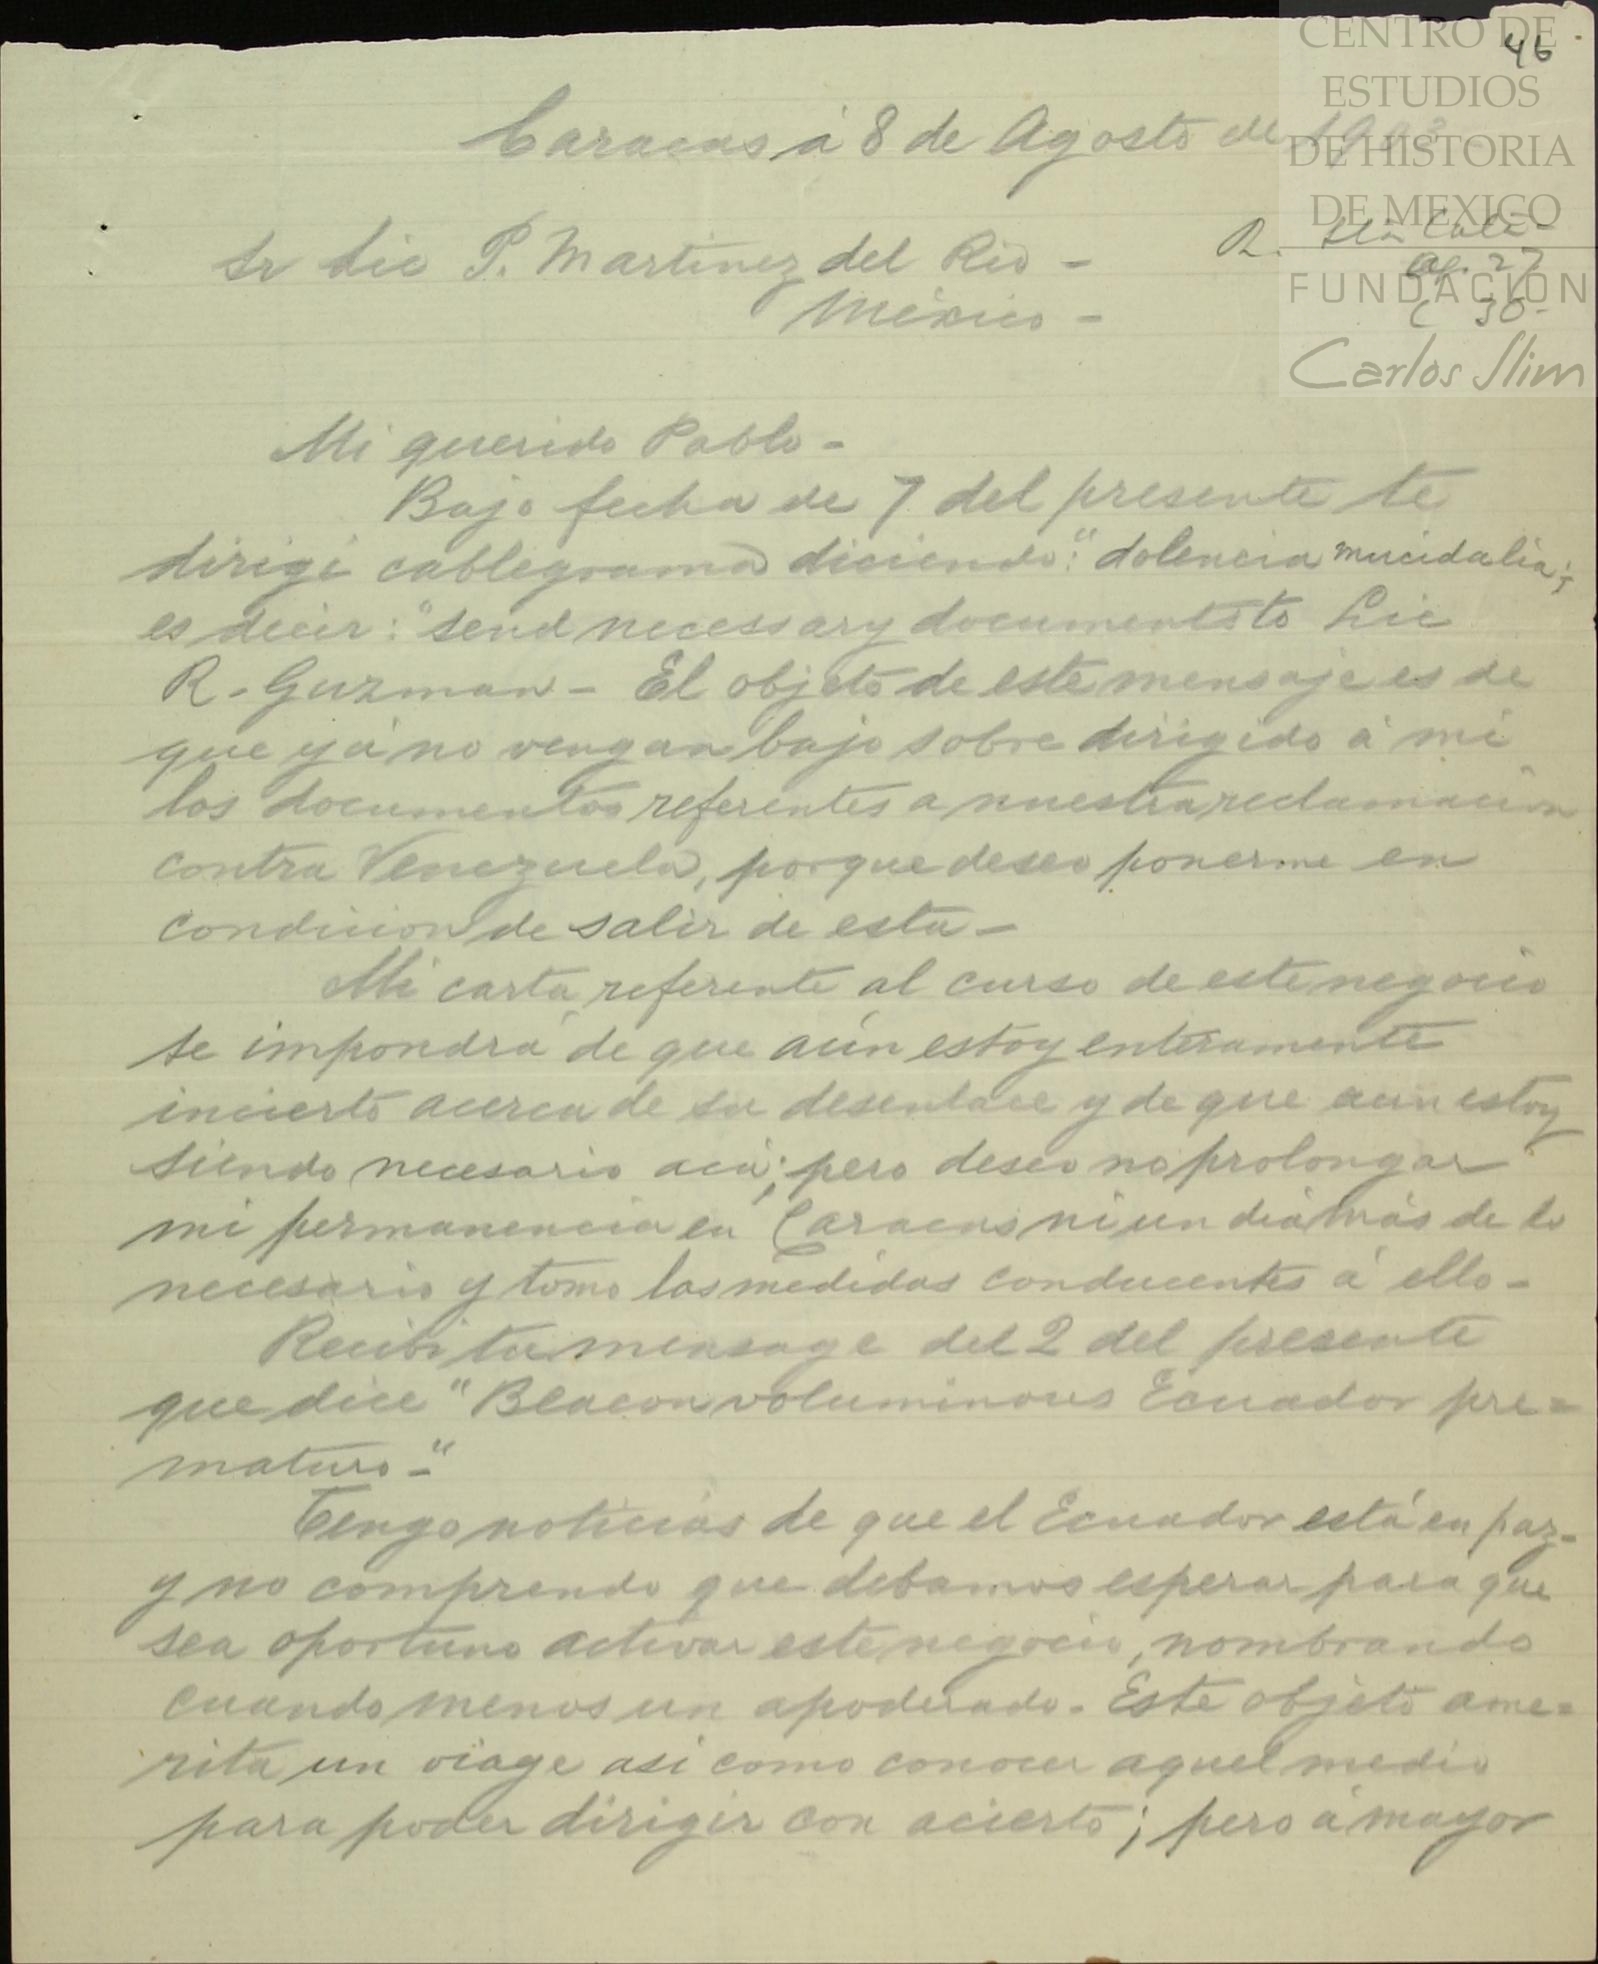 CENTRO DE
46
ESTUDIOS
DE HISTORIA
DE MEXICO
FUNDACION
Carlos Slim
Caracas á 8 de Agosto de
R.
27
30-
Sr Lic P. Martinez del Rio -
México -
Mi querido Pablo -
Bajo fecha de 7 del presente te
dirigi cablegrama diciendo: "dolencia mucidalia";
es decir: "send necessary documents to Lic
R. Guzman - El objeto de este mensaje es de
que yá no vengan bajo sobre dirigido á mi
los documentos referentes a nuestra reclamacion
contra Venezuela, porque deseo ponerme en
condicion de salir de esta -
Mi carta referente al curso de este negocio
te impondrá de que aún estoy enteramente
incierto acerca de su desenlace y de que aun estoy
siendo necesario acá; pero deseo no prolongar
mi permanencia en Caracas ni un dia más de lo
necesario y tomo las medidas conducentes á ello -
Recibi tu mensage del 2 del presente
que dice "Beacon voluminous Ecuador pre=
maturo -"
Tengo noticias de que el Ecuador está en paz -
y no comprendo que debamos esperar para que
sea oportuno activar este negocio, nombrando
cuando menos un apoderado. Este objeto ame=
rita un viage asi como conocer aquel medio
para poder dirigir con acierto; pero á mayor